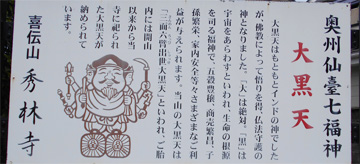 奥州仙臺七福神
大黒天
大黒天はもともとインドの神でした
が、佛教によって悟りを得、仏法守護の
神となりました。「大」は絶対、「黒」は
宇宙をあらわすといわれ、生命の根源
を司る福神で、五穀豊穣、商売繁昌、子
孫繁栄、家内安全等々さまざまなご利
益が与えられます。当山の大黒天は
「三面六臂出世大黒天」といわれ、ご胎
内には開山
以来から当
寺に祀られ
た大黒天が
納められて
います。
喜伝山 秀林寺